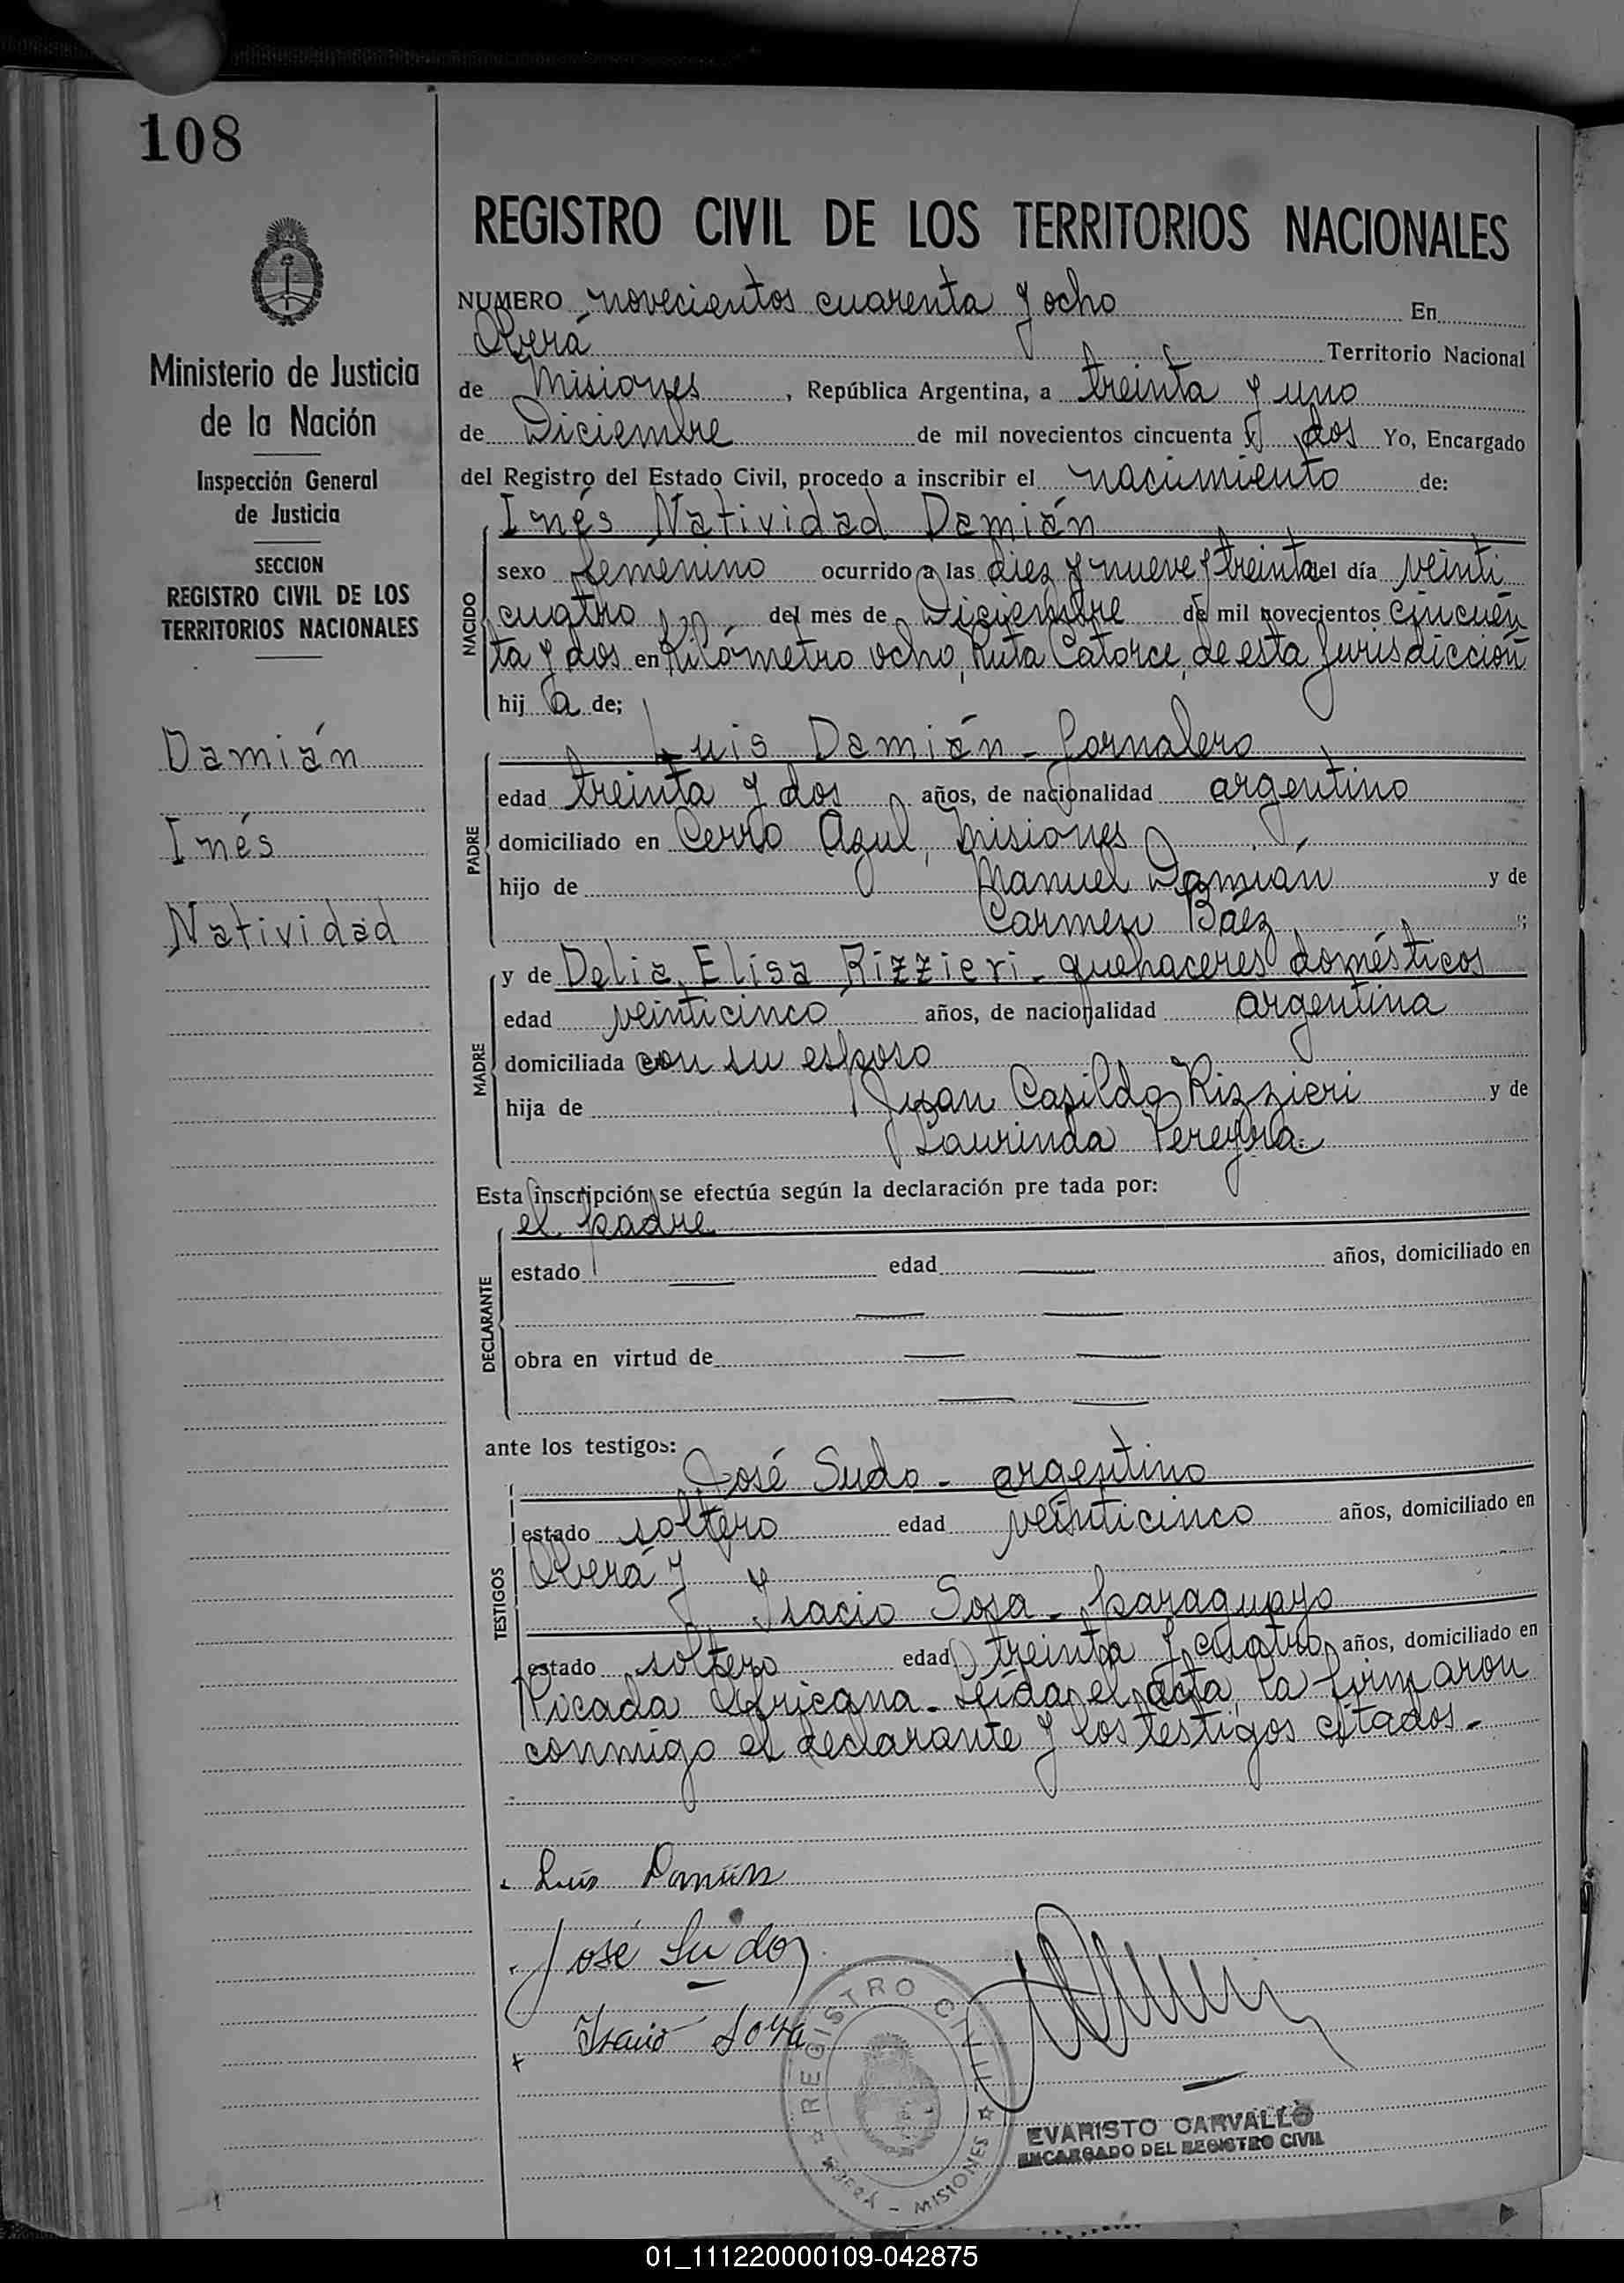 108
Ministerio de Justicia
de la Nación
Inspección General
de Justicia
SECCION
REGISTRO CIVIL DE LOS
TERRITORIOS NACIONALES
Damián
Inés
Natividad
REGISTRO CIVIL DE LOS TERRITORIOS NACIONALES
NUMERO novecientos cuarenta y ocho En
Oberá Territorio Nacional
de Misiones, República Argentina, a treinta y uno
de Diciembre de mil novecientos cincuenta y dos Yo, Encargado
del Registro del Estado Civil, procedo a inscribir el nacimiento de:
Inés Natividad Damián
NACIDO
sexo femenino ocurrido a las diez y nueve y treinta del día veinti
cuatro del mes de Diciembre de mil novecientos cincuen
ta y dos en Kilómetro ocho, Ruta Catorce, de esta jurisdicción
hij a de;
PADRE
Luis Damián - Jornalero
edad treinta y dos años, de nacionalidad argentino
domiciliado en Cerro Azul, Misiones
hijo de Manuel Damián y de
Carmen Báez ;
MADRE
y de Delia Elisa Rizzieri - quehaceres domésticos
edad veinticinco años, de nacionalidad argentina
domiciliada con su esposo
hija de Juan Casildo Rizzieri y de
Laurinda Pereyra.
Esta inscripción se efectúa según la declaración pre tada por:
DECLARANTE
el padre
estado edad años, domiciliado en
obra en virtud de
ante los testigos:
TESTIGOS
José Sudo - argentino
estado soltero edad veinticinco años, domiciliado en
Oberá y
Isacio Sosa - paraguayo
estado soltero edad treinta y cuatro años, domiciliado en
Picada Africana - Leída el acta, la firmaron
conmigo el declarante y los testigos citados -
Luis Damián
José Sudo
Isacio Sosa
REGISTRO CIVIL
OBERÁ - MISIONES
EVARISTO CARVALLO
ENCARGADO DEL REGISTRO CIVIL
01_111220000109-042875